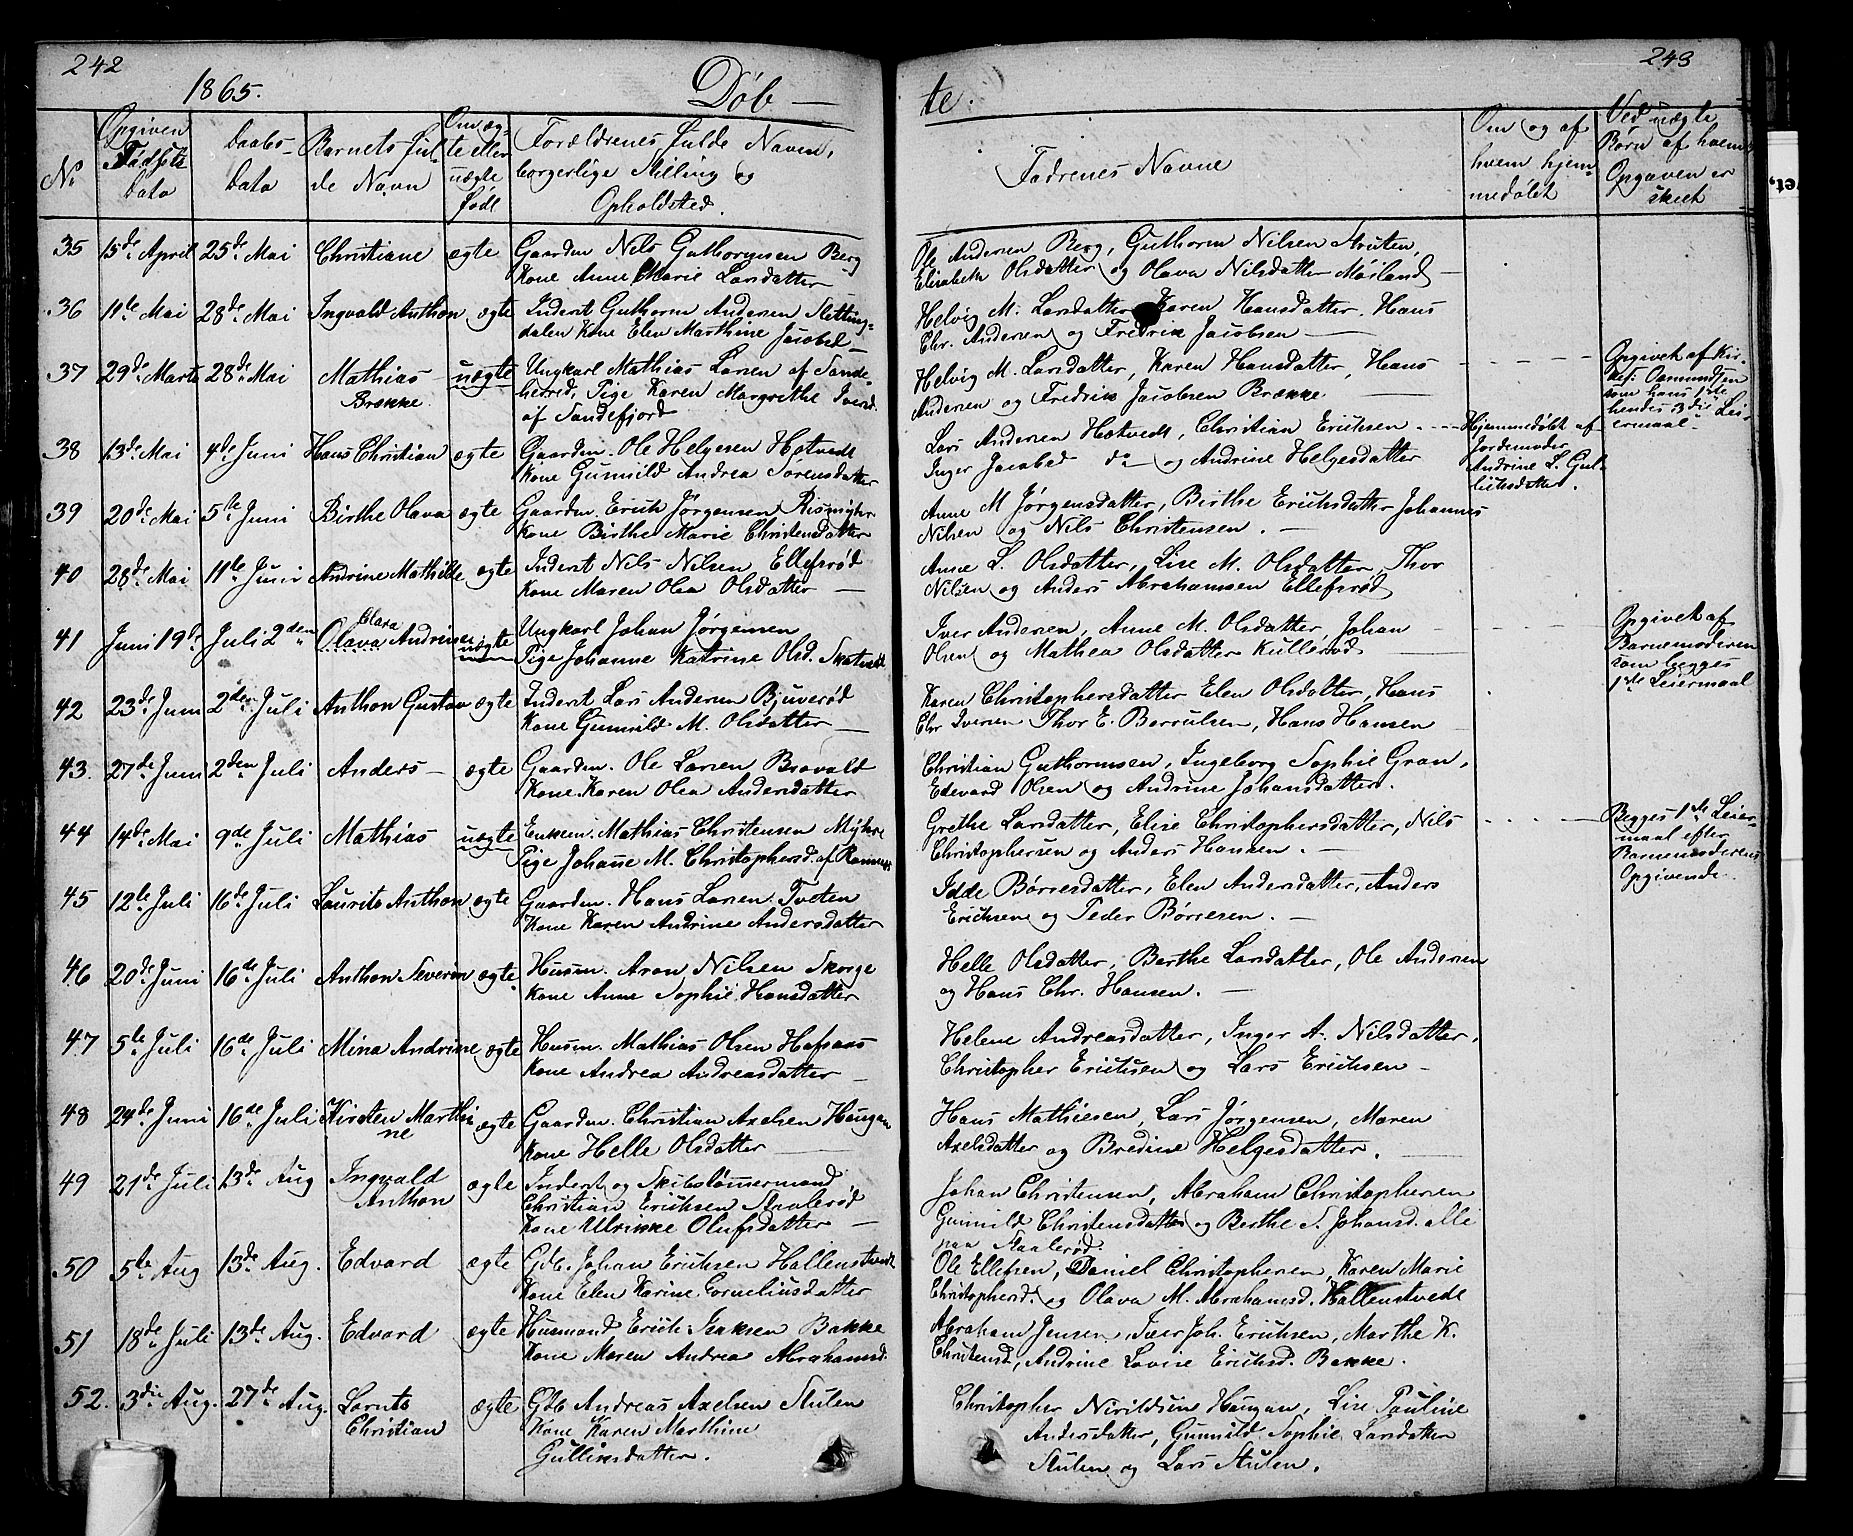 242
243
1865.
Døb — te.
No
Opgiven Fødsels Data
Daabs- Data
Barnets ful- de Navn
Om æg- te eller uægte Født
Forældrenes fulde Navn, borgerlige Stilling og Opholdsted.
Fadrenes Navne
Om og af hvem hjem- medøbt
Ved uægte Børn af hvem Opgaven er skeet
35 15de April 25de Mai Christiane ægte Gaardm Nils Guthormsen Berg
Kone Anne Marie Larsdatter
Ole Andersen Berg, Guthorm Nilsen Struten,
Elisabeth Olsdatter og Olava Nilsdatter Møiland —
36 11te Mai 28de Mai Ingvald Anthon ægte Inderst Guthorm Andersen Sletting-
dalen Kone Elen Marthine Jacobsd —
Helvig M. Larsdatter Karen Hansdatter. Hans
Chr. Andersen og Fredrik Jacobsen —
37 29de Marts 28de Mai Mathias uægte Ungkarl Mathias Larsen af Sande-
Brække herred, Pige Karen Margrethe Iversd.
af Sandefjord
Helvig M. Larsdatter, Karen Hansdatter, Hans
Andersen og Fredrik Jacobsen Brække. —
Opgivet af Kir-
som hans 1ste
hendes 3die Lei-
ermaal —
38 13de Mai 4de Juni Hans Christian ægte Gaardm. Ole Helgesen Hotvedt
Kone Gunnild Andrea Sørensdatter
Lars Andersen Hotvedt, Christian Erichsen
Inger Jacobsd do — og Andrine Helgesdatter
Hjemmedøbt af
Jordemoder
Andrine L. Gul-
liksdatter.
39 20de Mai 5te Juni Birthe Olava ægte Gaardm. Erich Jørgensen Rismyhr
Kone Birthe Marie Christensdatter
Anne M Jørgensdatter, Birthe Erichsdatter Johannes
Nilsen og Nils Christensen. —
40 28de Mai 11te Juni Andrine Mathilde ægte Inderst Nils Nilsen Ellefsrød
Kone Maren Olea Olsdatter —
Anne L. Olsdatter, Lise M. Olsdatter, Thor
Nilsen og Anders Abrahamsen Ellefsrød
41 Juni 19de Juli 2den Clara
Olava Andrine uægte Ungkarl Johan Jørgensen
Pige Johanne Katrine Olsd. Skatvedt
Iver Andersen, Anne M. Olsdatter, Johan
Olsen og Mathea Olsdatter Kullerød —
Opgivet af
Barnemoderen
som begges
1ste Leiermaal
42 23de Juni 2den Juli Anthon Gustav ægte Inderst Lars Andersen Bjuverød
Kone Gunnild M. Olsdatter —
Karen Christophersdatter Elen Olsdatter, Hans
Chr Iversen Thor E. Borrulsen, Hans Hansen
43. 27de Juni 2den Juli Anders — ægte Gaardm. Ole Larsen Bravald
Kone Karen Olea Andersdatter
Christian Guthormsen, Ingeborg Sophie Gran,
Edevard Olsen og Andrine Johansdatter.
44 14de Mai 9de Juli Mathias uægte Enkem. Mathias Christensen Myhre
Pige Johane M. Christophersd. af Ramnæs
Grethe Larsdatter, Elise Christophersdatter, Nils
Christophersen og Anders Hansen. —
Begges 1ste Leier-
maal efter
Barnemoderens
Opgivende.
45 12te Juli 16de Juli Laurits Anthon ægte Gaardm. Hans Larsen Tveten
Kone Karen Andrine Andersdatter
Idde Børresdatter, Elen Andersdatter, Anders
Erichsen og Peder Børresen. —
46 20de Juni 16de Juli Anthon Severin ægte Husm. Aron Nilsen Skorge
Kone Anne Sophie Hansdatter
Helle Olsdatter, Berthe Larsdatter, Ole Andersen
og Hans Chr. Hansen. —
47 5te Juli 16de Juli Mina Andrine ægte Husm. Mathias Olsen Hafsaas
Kone Andrea Andreasdatter —
Helene Andreasdatter, Inger A. Nilsdatter,
Christopher Erichsen og Lars Erichsen —
48 24de Juni 16de Juli Kirsten Marthi- ægte Gaardm. Christian Axelsen Haugan
ne Kone Helle Olsdatter —
Hans Mathiesen, Lars Jørgensen, Maren
Axelsdatter og Bredine Helgesdatter.
49 21de Juli 13de Aug Ingvald ægte Inderst og Skibstømmermand
Anthon Christian Erichsen Staalerød
Kone Ulrikke Olufsdatter —
Johan Christensen, Abraham Christophersen
Gunnild Christensdatter og Berthe S. Johansd. alle
paa Staalerød.
50 5te Aug 13de Aug. Edvard ægte Gdb. Johan Erichsen Hallenstvedt
Kone Elen Karine Corneliusdatter
Ole Ellefsen, Daniel Christophersen, Karen Marie
Christophersd. og Olava M. Abrahamsd. Hallenstvedt
51 18de Juli 13de Aug. Edvard ægte Husmand Erich Isaksen Bakke
Kone Maren Andrea Abrahamsd.
Abraham Jensen, Iver Joh. Erichsen, Marthe K.
Christensd, Andrine Lovise Erichsd. Bakke.
52. 3die Aug. 27de Aug. Laruts ægte Gdb Andreas Axelsen Stulen
Christian Kone Karen Marthine
Gulliksdatter.
Christopher Nirildsen Haugan, Lise Pauline
Andersdatter, Gunnild Sophie Larsdatter
Stulen og Lars Stulen.